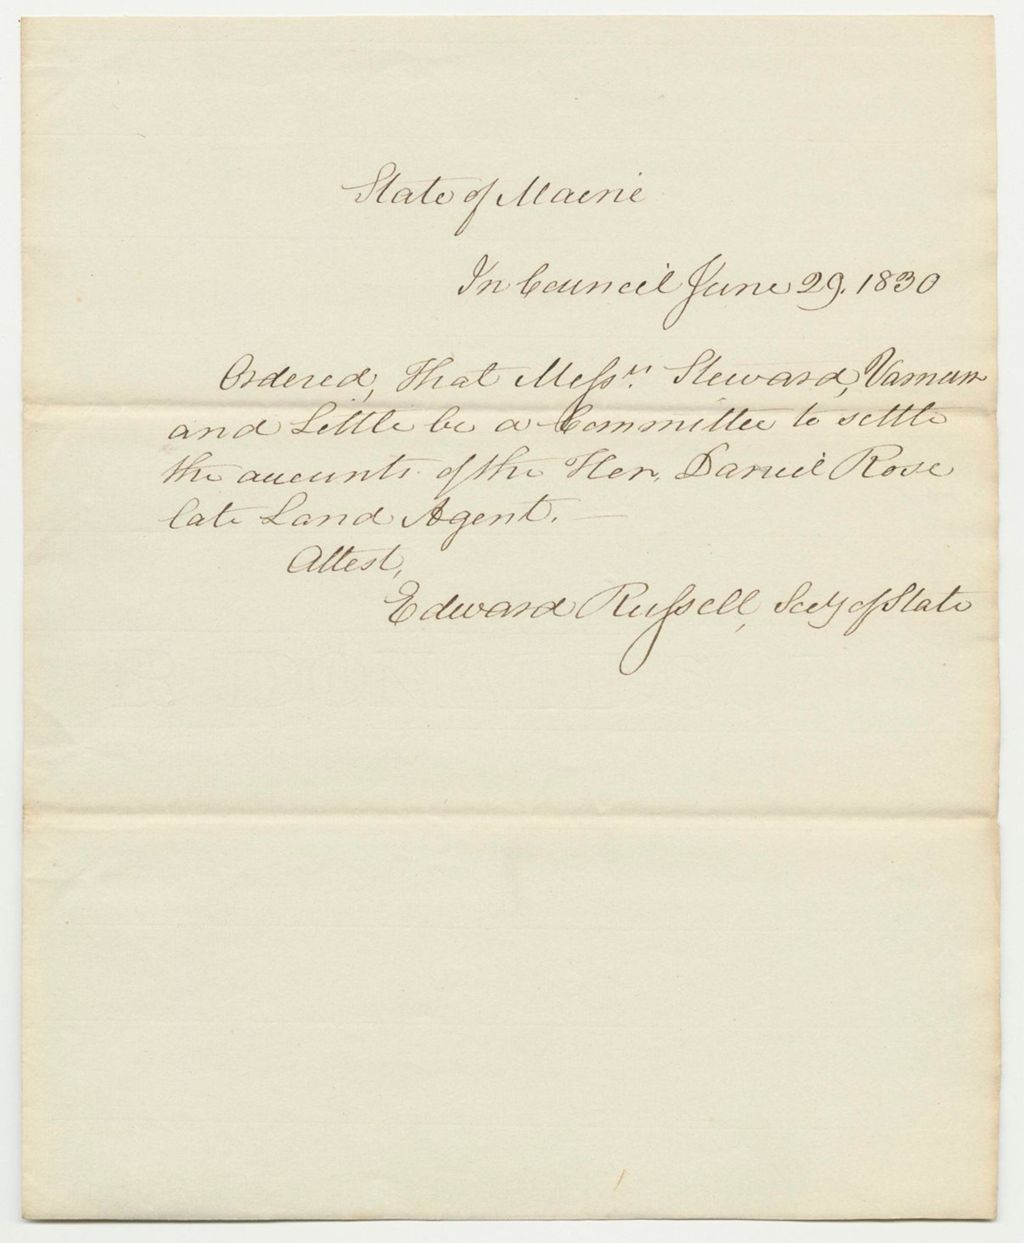 State of Maine
In Council June 29. 1830
Ordered, That Messrs. Steward, Varnum
and Little be a Committee to settle
the accounts of the Hon. Daniel Rose
late Land Agent. —
Attest,
Edward Russell, Secy of State